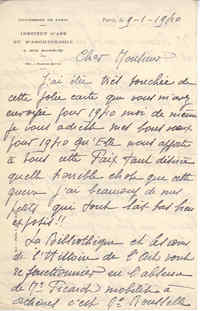 UNIVERSITÉ DE PARIS
INSTITUT D'ART
ET D'ARCHÉOLOGIE
3, RUE MICHELET
Paris, le 9-1-1940
Cher Monsieur
J'ai été très touchée de
cette jolie carte que vous m'avez
envoyée pour 1940 moi de même
je vous adresse mes bons vœux
pour 1940 qu'Elle nous apporte
à tous cette Paix tant désirée
quelle horrible chose que cette
guerre j'ai beaucoup de mes
petits qui sont là bas bien
exposés !!
La Bibliothèque et les cours
de l'Histoire de l'Art vont
refonctionner en l'absence
de Mr Picard mobilisé à
c'est